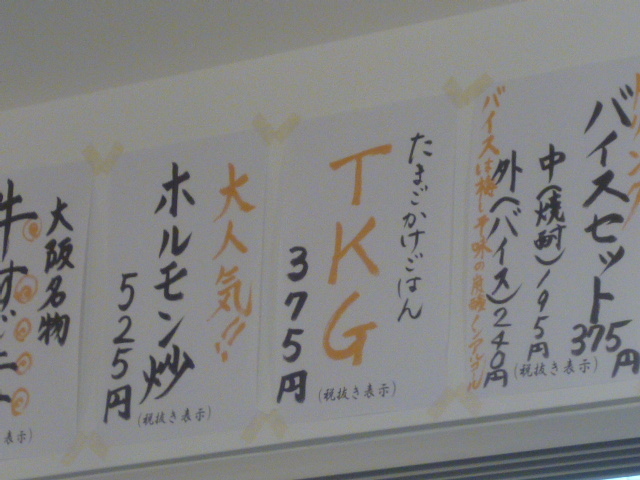 バイスセット
375円
中(焼酎)195円
外(バイス)240円
(税抜き表示)
たまごかけごはん
TKG
375円
(税抜き表示)
大人気!!
ホルモン炒
525円
(税抜き表示)
大阪名物
牛すじ
表示)